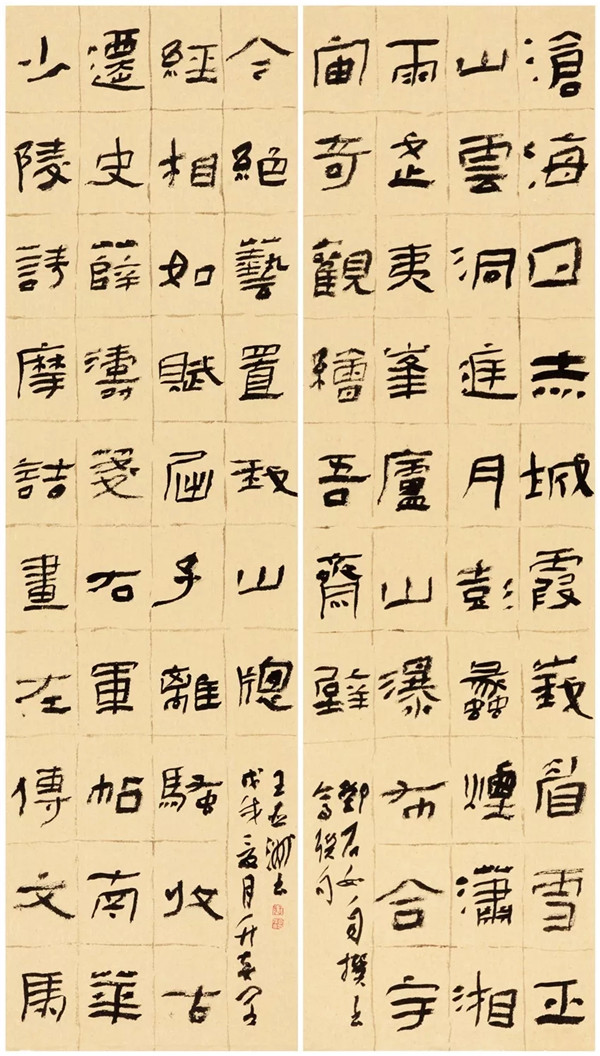 滄海日赤城霞峨眉雪巫
山雲洞庭月彭蠡煙瀟湘
雨武夷峯廬山瀑布合宇
宙奇觀繪吾齋壁
鄧石如自撰書
齋聯句
少陵詩摩詰畫左傳文馬
遷史薛濤箋右軍帖南華
經相如賦屈子離騷收古
今絕藝置我山牕
戊戌夏月